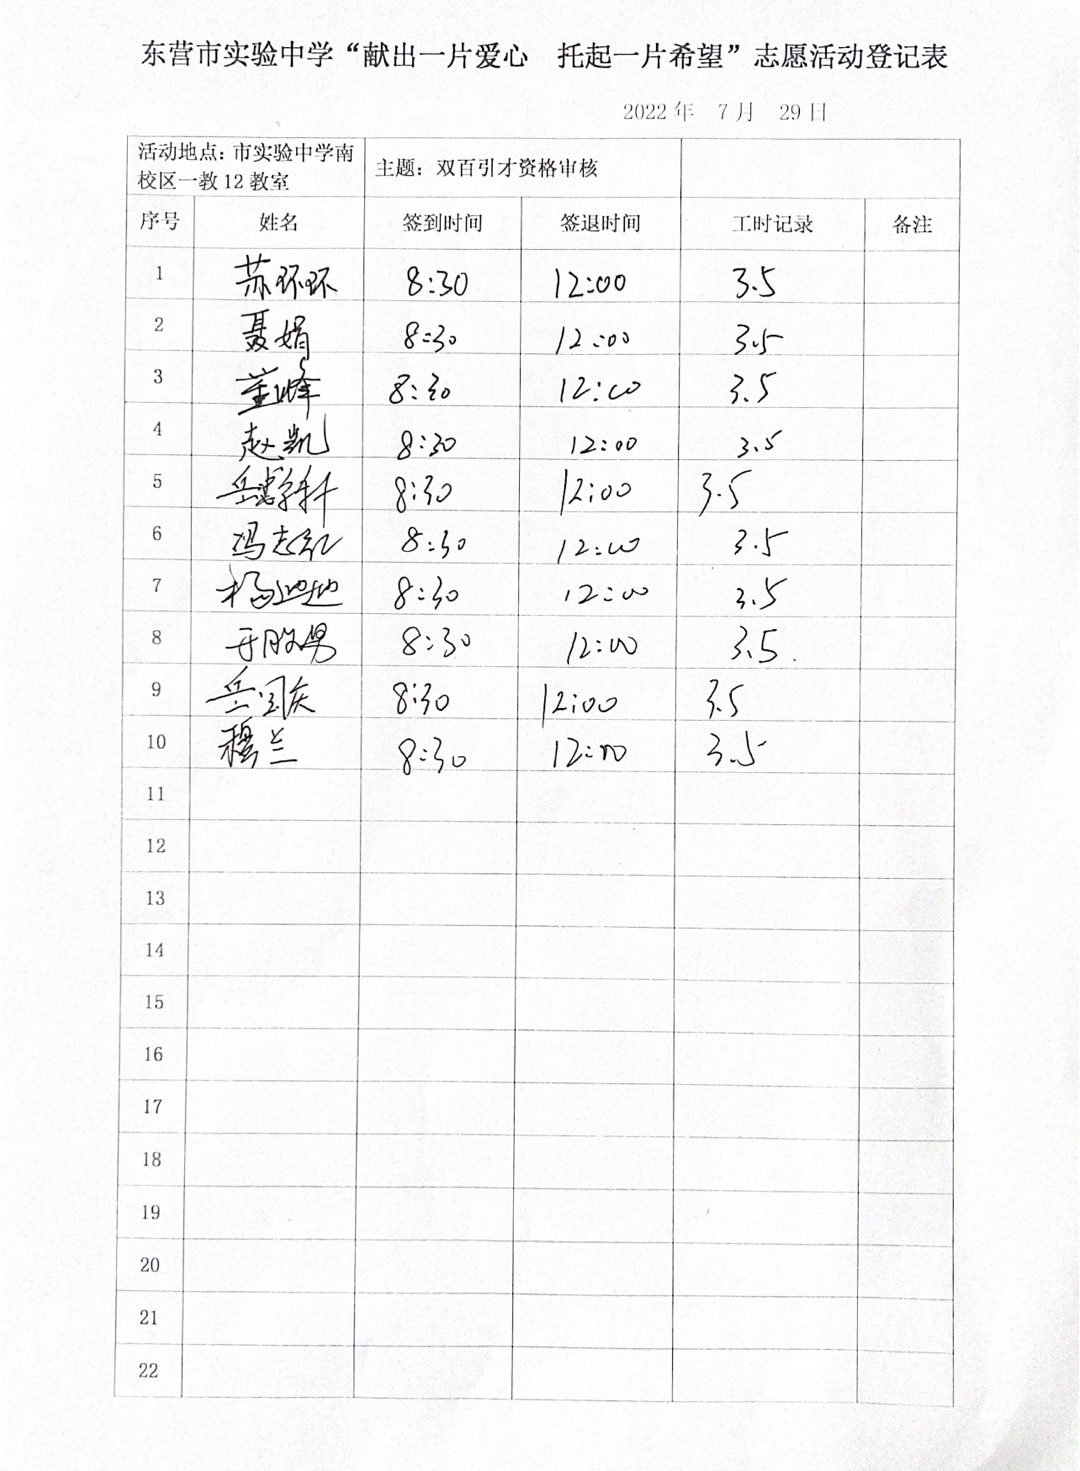 东营市实验中学“献出一片爱心 托起一片希望”志愿活动登记表
2022年 7月 29日
活动地点：市实验中学南
校区一教12教室
主题：双百引才资格审核
序号 姓名 签到时间 签退时间 工时记录 备注
1 苏环环 8:30 12:00 3.5
2 聂娟 8:30 12:00 3.5
3 董峰 8:30 12:00 3.5
4 赵凯 8:30 12:00 3.5
5 岳 8:30 12:00 3.5
6 冯志红 8:30 12:00 3.5
7 杨 8:30 12:00 3.5
8 于胜男 8:30 12:00 3.5.
9 岳国庆 8:30 12:00 3.5
10 穆兰 8:30 12:00 3.5
11
12
13
14
15
16
17
18
19
20
21
22